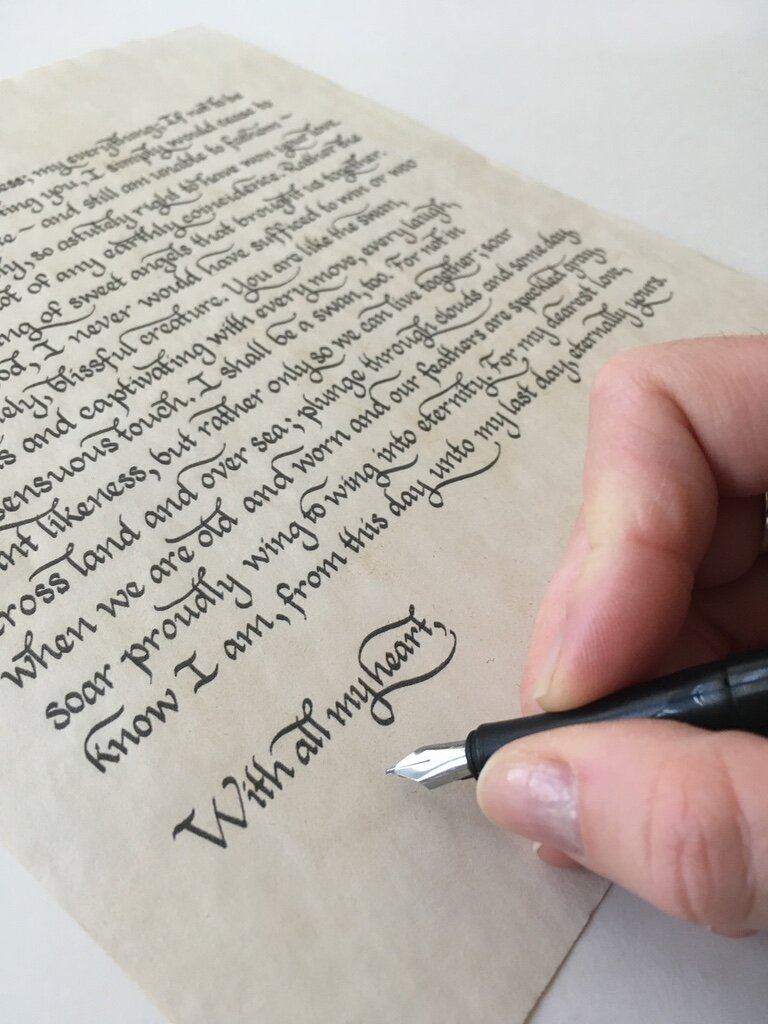 my everything. If not to be
ing you, I simply would cease to
and still am unable to fathom –
so astutely right to have won your love.
ot of any earthly coincidence. Rather the
ng of sweet angels that brought us together.
od, I never would have sufficed to win or woo
ely, blissful creature. You are like the swan,
s and captivating with every move, every laugh,
sensuous touch. I shall be a swan, too. For not in
nt likeness, but rather only so we can live together; soar
cross land and over sea; plunge through clouds and some day,
when we are old and worn and our feathers are speckled gray,
soar proudly wing to wing into eternity. For my dearest love,
know I am, from this day unto my last day, eternally yours.
With all my heart,